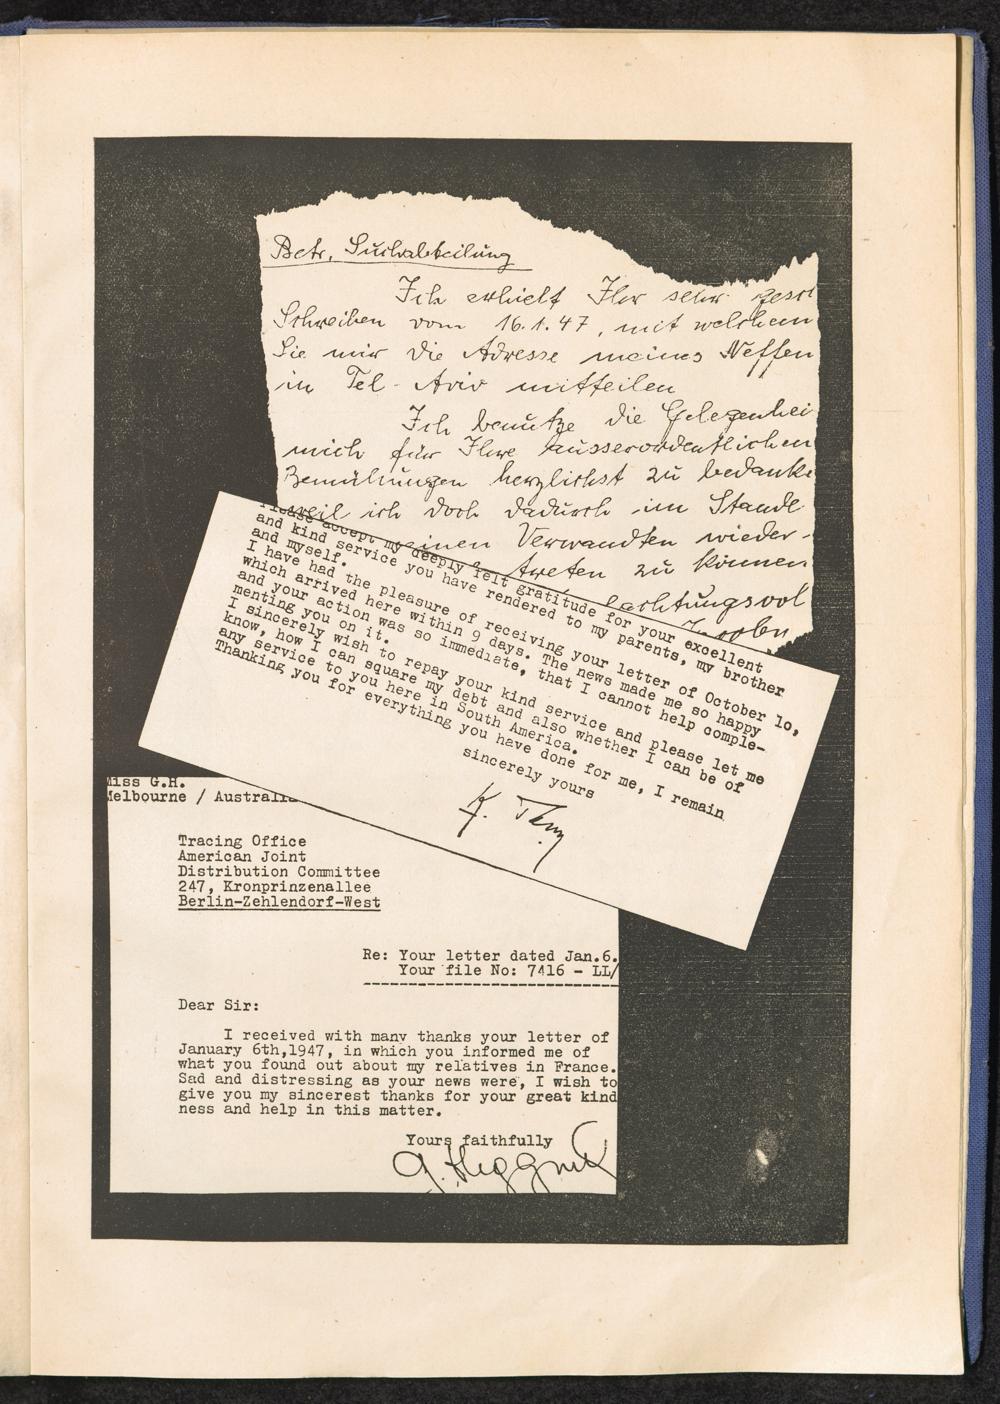 Betr. Suchabteilung
Ich erhielt Ihr sehr gesch
Schreiben vom 16.1.47, mit welchem
Sie mir die Adresse meines Neffen
in Tel-Aviv mitteilen
Ich benutze die Gelegenhei
mich für Ihre ausserordentlichen
Bemühungen herzlichst zu bedanke
weil ich doch dadurch im Stande
meinen Verwandten wieder-
treten zu können
achtungsvol
Please accept my deeply felt gratitude for your excellent
and kind service you have rendered to my parents, my brother
and myself.
I have had the pleasure of receiving your letter of October 1o,
which arrived here within 9 days. The news made me so happy
and your action was so immediate, that I cannot help comple-
menting you on it.
I sincerely wish to repay your kind service and please let me
know, how I can square my debt and also whether I can be of
any service to you here in South America.
Thanking you for everything you have done for me, I remain
sincerely yours
K.
Miss G.H.
Melbourne / Australia
Tracing Office
American Joint
Distribution Committee
247, Kronprinzenallee
Berlin-Zehlendorf-West
Re: Your letter dated Jan.6.
Your file No: 7416 - LL/
Dear Sir:
I received with many thanks your letter of
January 6th,1947, in which you informed me of
what you found out about my relatives in France.
Sad and distressing as your news were, I wish to
give you my sincerest thanks for your great kind
ness and help in this matter.
Yours faithfully
G.